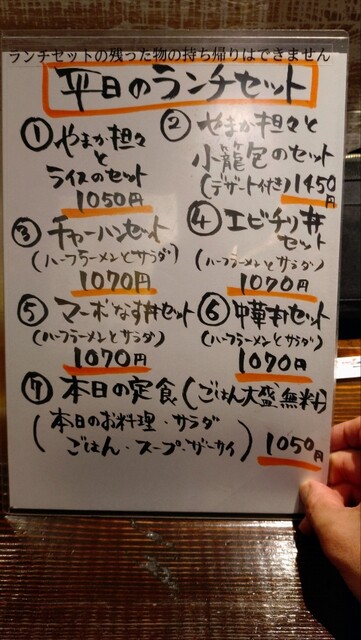 ランチセットの残った物の持ち帰りはできません
平日のランチセット
① やまか担々
と
ライスのセット
1050円
② やまか担々と
小籠包のセット
(デザート付き) 1450円
③ チャーハンセット
(ハーフラーメンとサラダ)
1070円
④ エビチリ丼
セット
(ハーフラーメンとサラダ)
1070円
⑤ マーボなす丼セット
(ハーフラーメンとサラダ)
1070円
⑥ 中華丼セット
(ハーフラーメンとサラダ)
1070円
⑦ 本日の定食 (ごはん大盛無料)
(本日のお料理・サラダ
ごはん・スープ・ザーサイ) 1050円